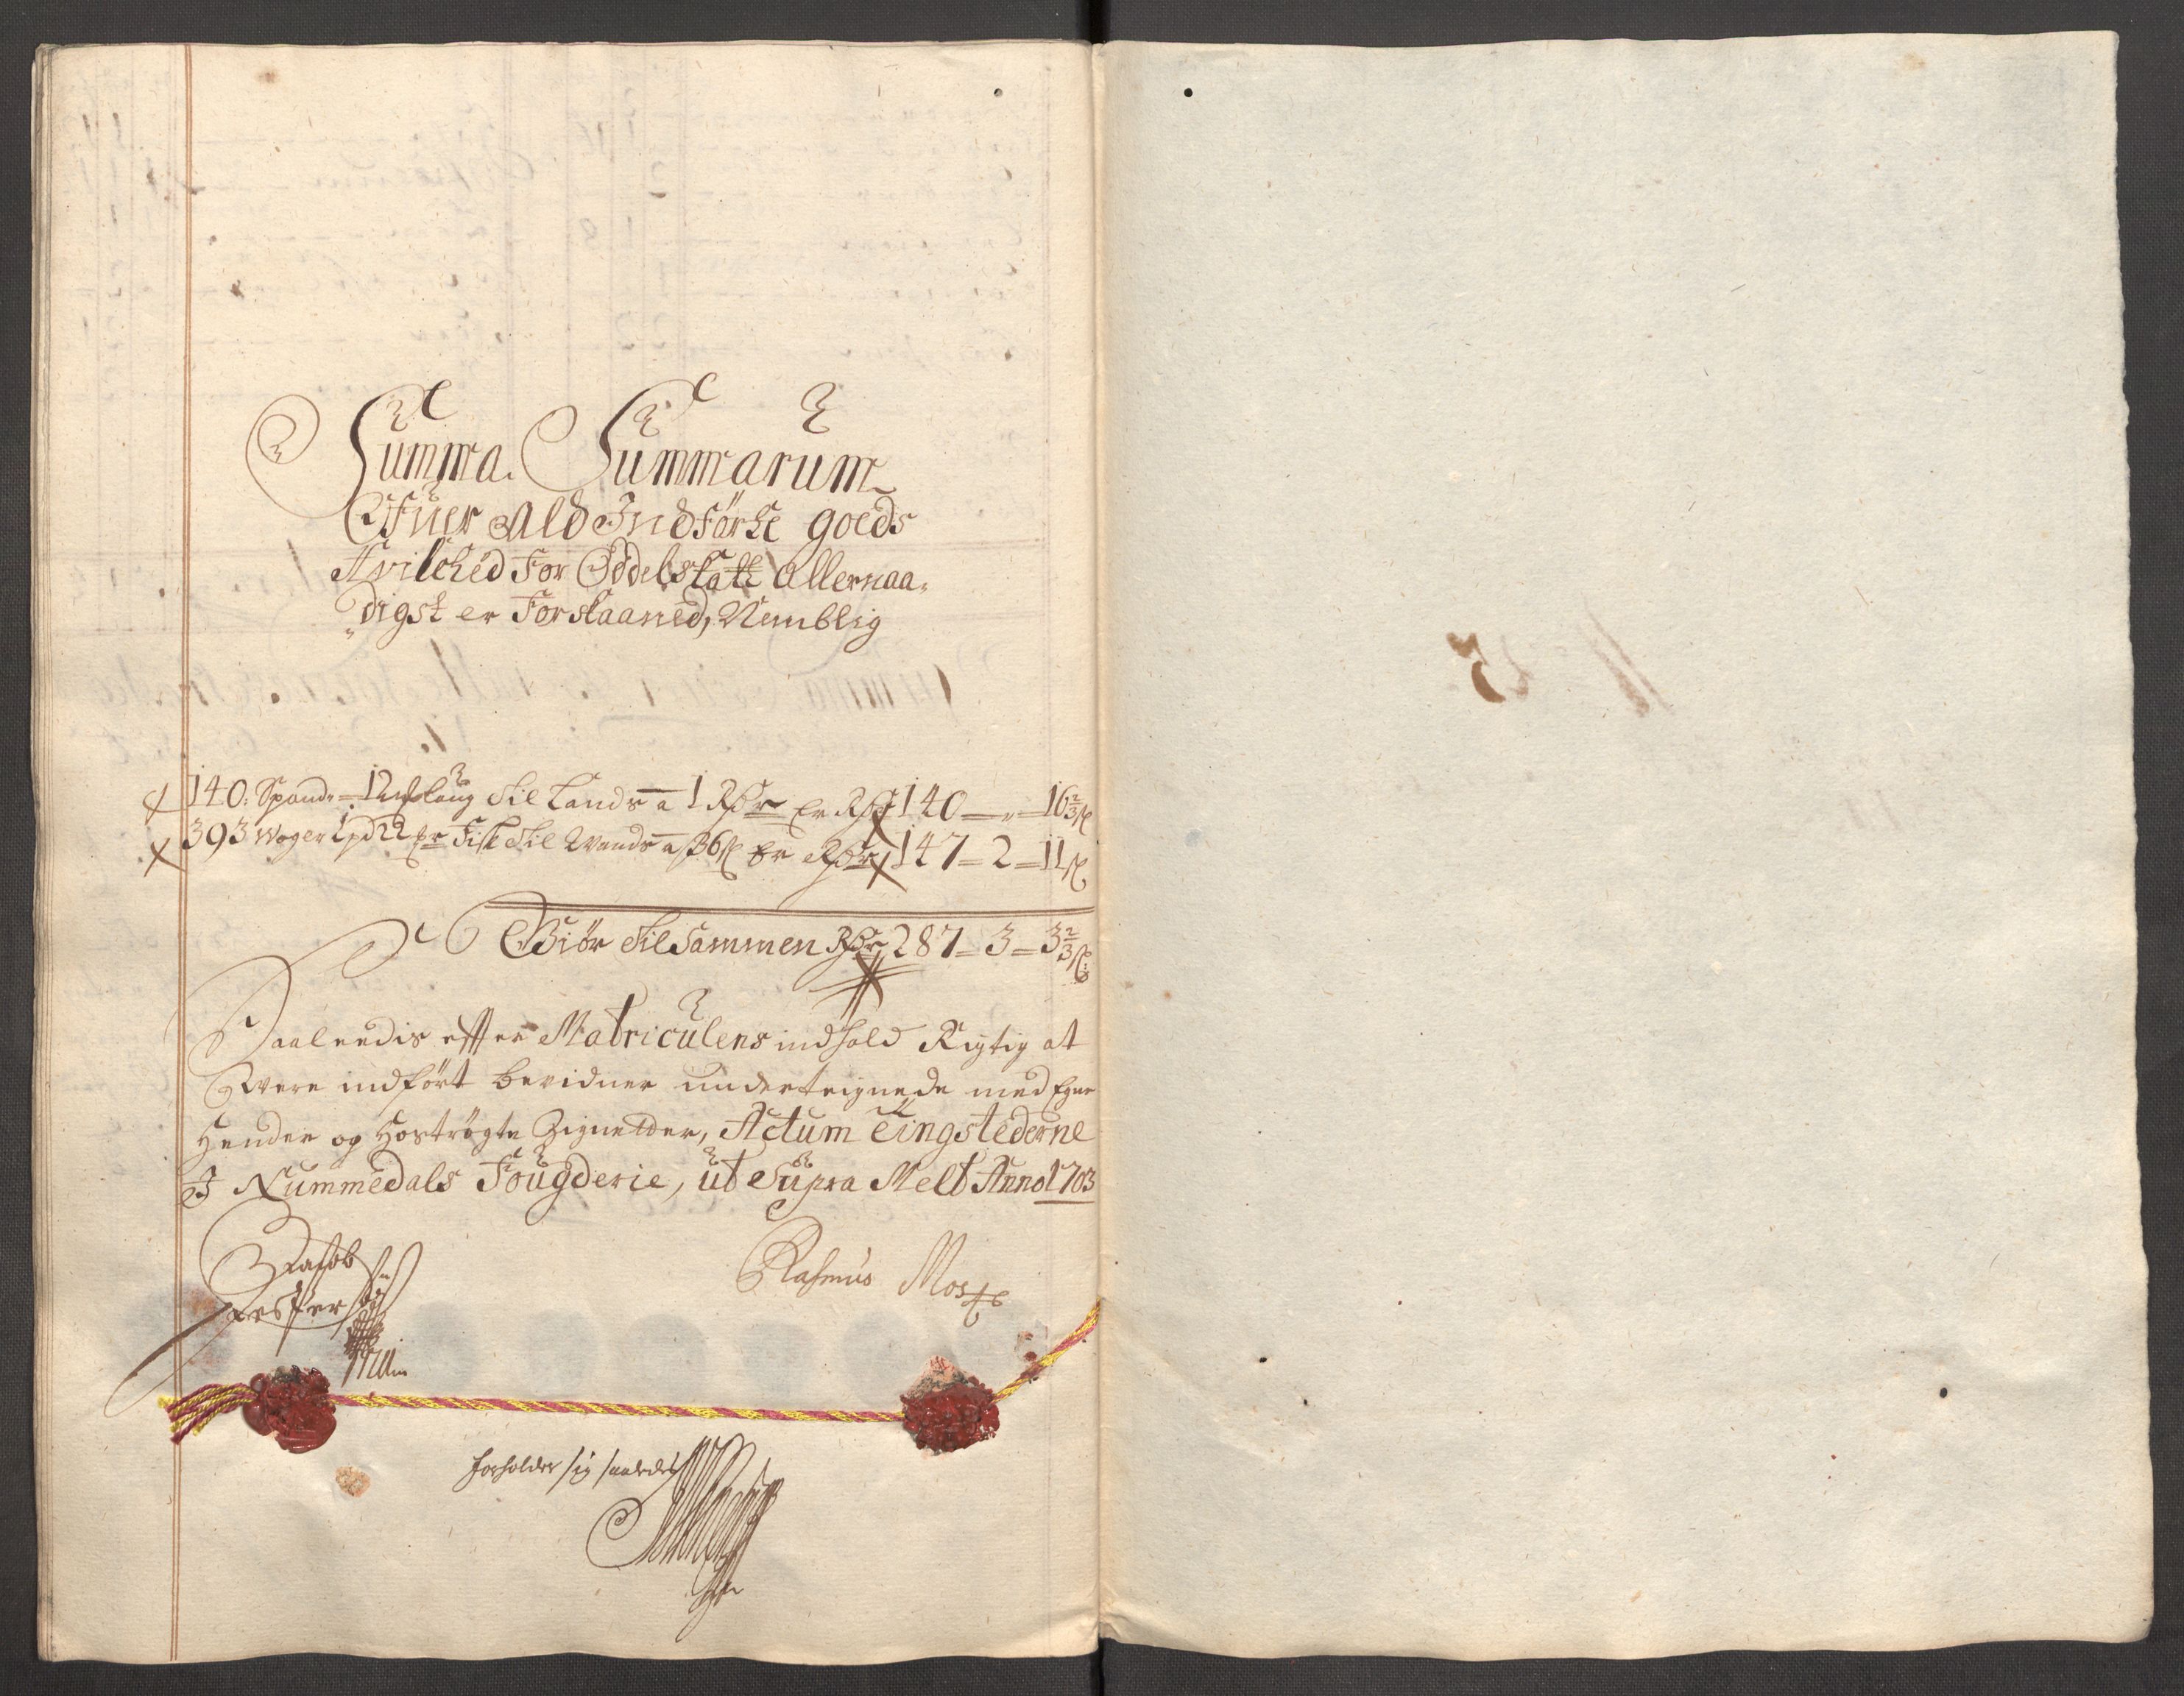 Summa. Summarum
Ofuer Ald Indförte goeds
Hvilched For Oddelskatt Allernaa„
„digst er Forskaaned, Nemblig
140: Spand „ 12 Øhr Laug til Lands a 1 Rdr Er Rdr 140 — „ — 16 2/3 s
393 Woger 1 pd 22 Fisk til Wands a 36 s Er Rdr 147 — 2 — 11 s
Giör tilsammen Rdr 287 — 3 — 3 2/3 s:
Saaleedis effter Matriculens indhold Rigtig at
Were indfört bevidner underteignede med Egne
Hender og hoströgte Zignetter, Actum Tingstederne
I Nummedals Fougderie, ut Supra Melt Anno 1703
Rasmus
forholder sig saaledes